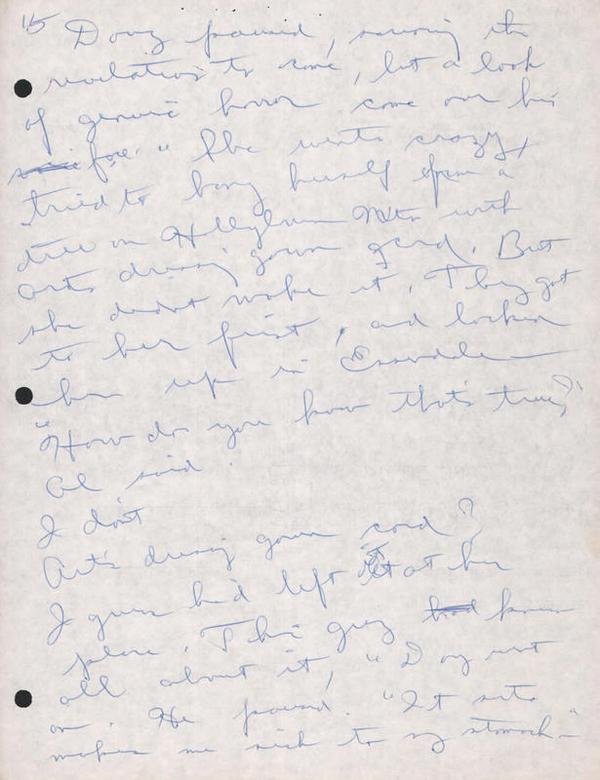 115
Doug paused, savoring the
revelation to come, but a look
of genuine horror came over his
face. "She went crazy,
tried to hang herself from a
tree on Hollyburn Mtn with
Art's dressing gown cord. But
she didn't make it. They got
to her first, and locked
her up in Essondale—
"How do you know that's true?"
Al said.
I don't
Art's dressing gown cord?
I guess he'd left it at her
place. This guy knew
all about it," Doug went
on. He paused. "It
makes me sick to my stomach—"